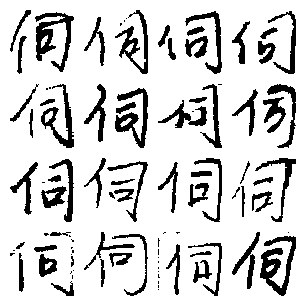 伺伺伺伺
伺伺伺伺
伺伺伺伺
伺伺伺伺